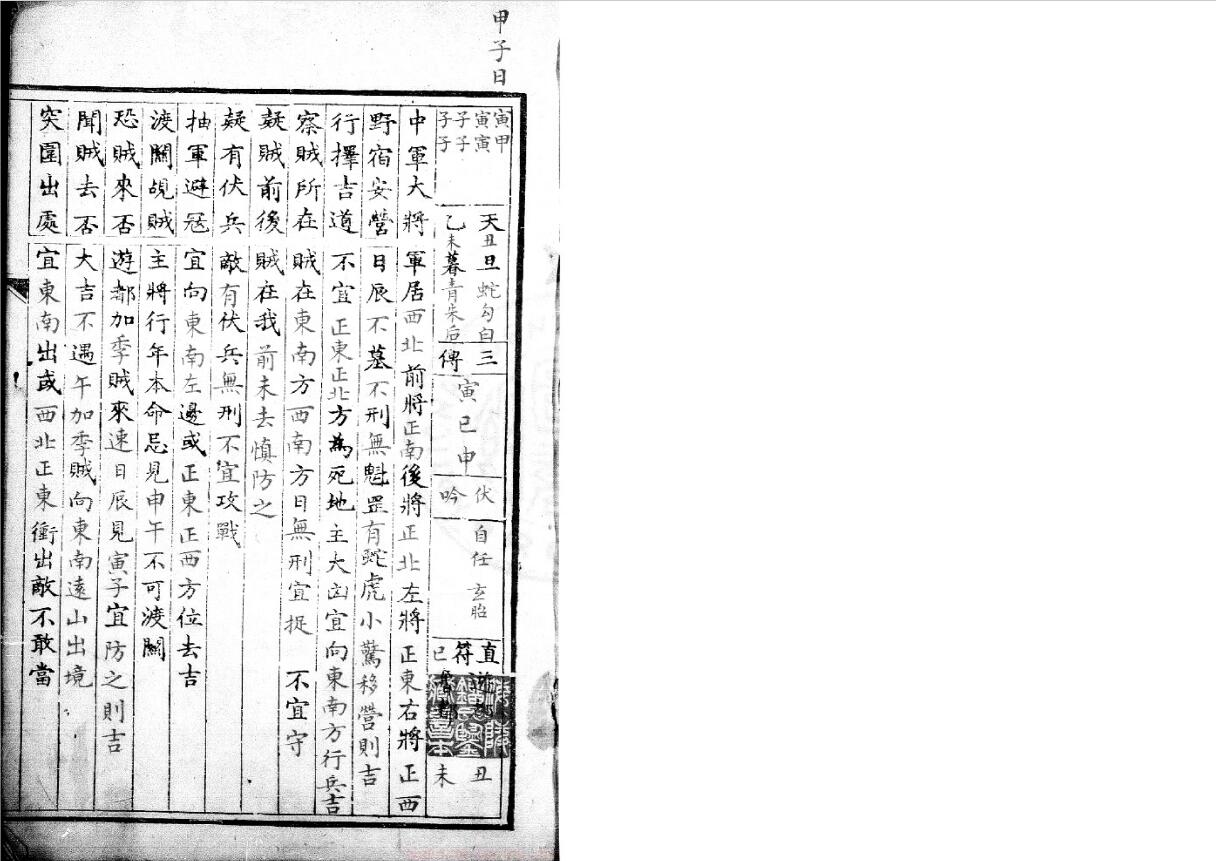 甲子日
寅甲
寅寅
子子
子子
天丑旦蛇勾白
乙未暮青朱后
三
傳
寅巳申
伏
吟
自任 玄胎
直
符
巳
丑
未
中軍大將 軍居西北前將正南後將正北左將正東右將正西
野宿安營 日辰不墓不刑無魁罡有蛇虎小驚移營則吉
行擇吉道 不宜正東正北方為死地主大凶宜向東南方行兵吉
察賊所在 賊在東南方西南方日無刑宜捉 不宜守
疑賊前後 賊在我前未去慎防之
疑有伏兵 敵有伏兵無刑不宜攻戰
抽軍避冦 宜向東南左邊或正東正西方位去吉
渡關覘賊 主將行年本命忌見申午不可渡關
恐賊來否 遊都加季賊來速日辰見寅子宜防之則吉
聞賊去否 大吉不遇午加季賊向東南遠山出境
突圍出處 宜東南出或西北正東衝出敵不敢當